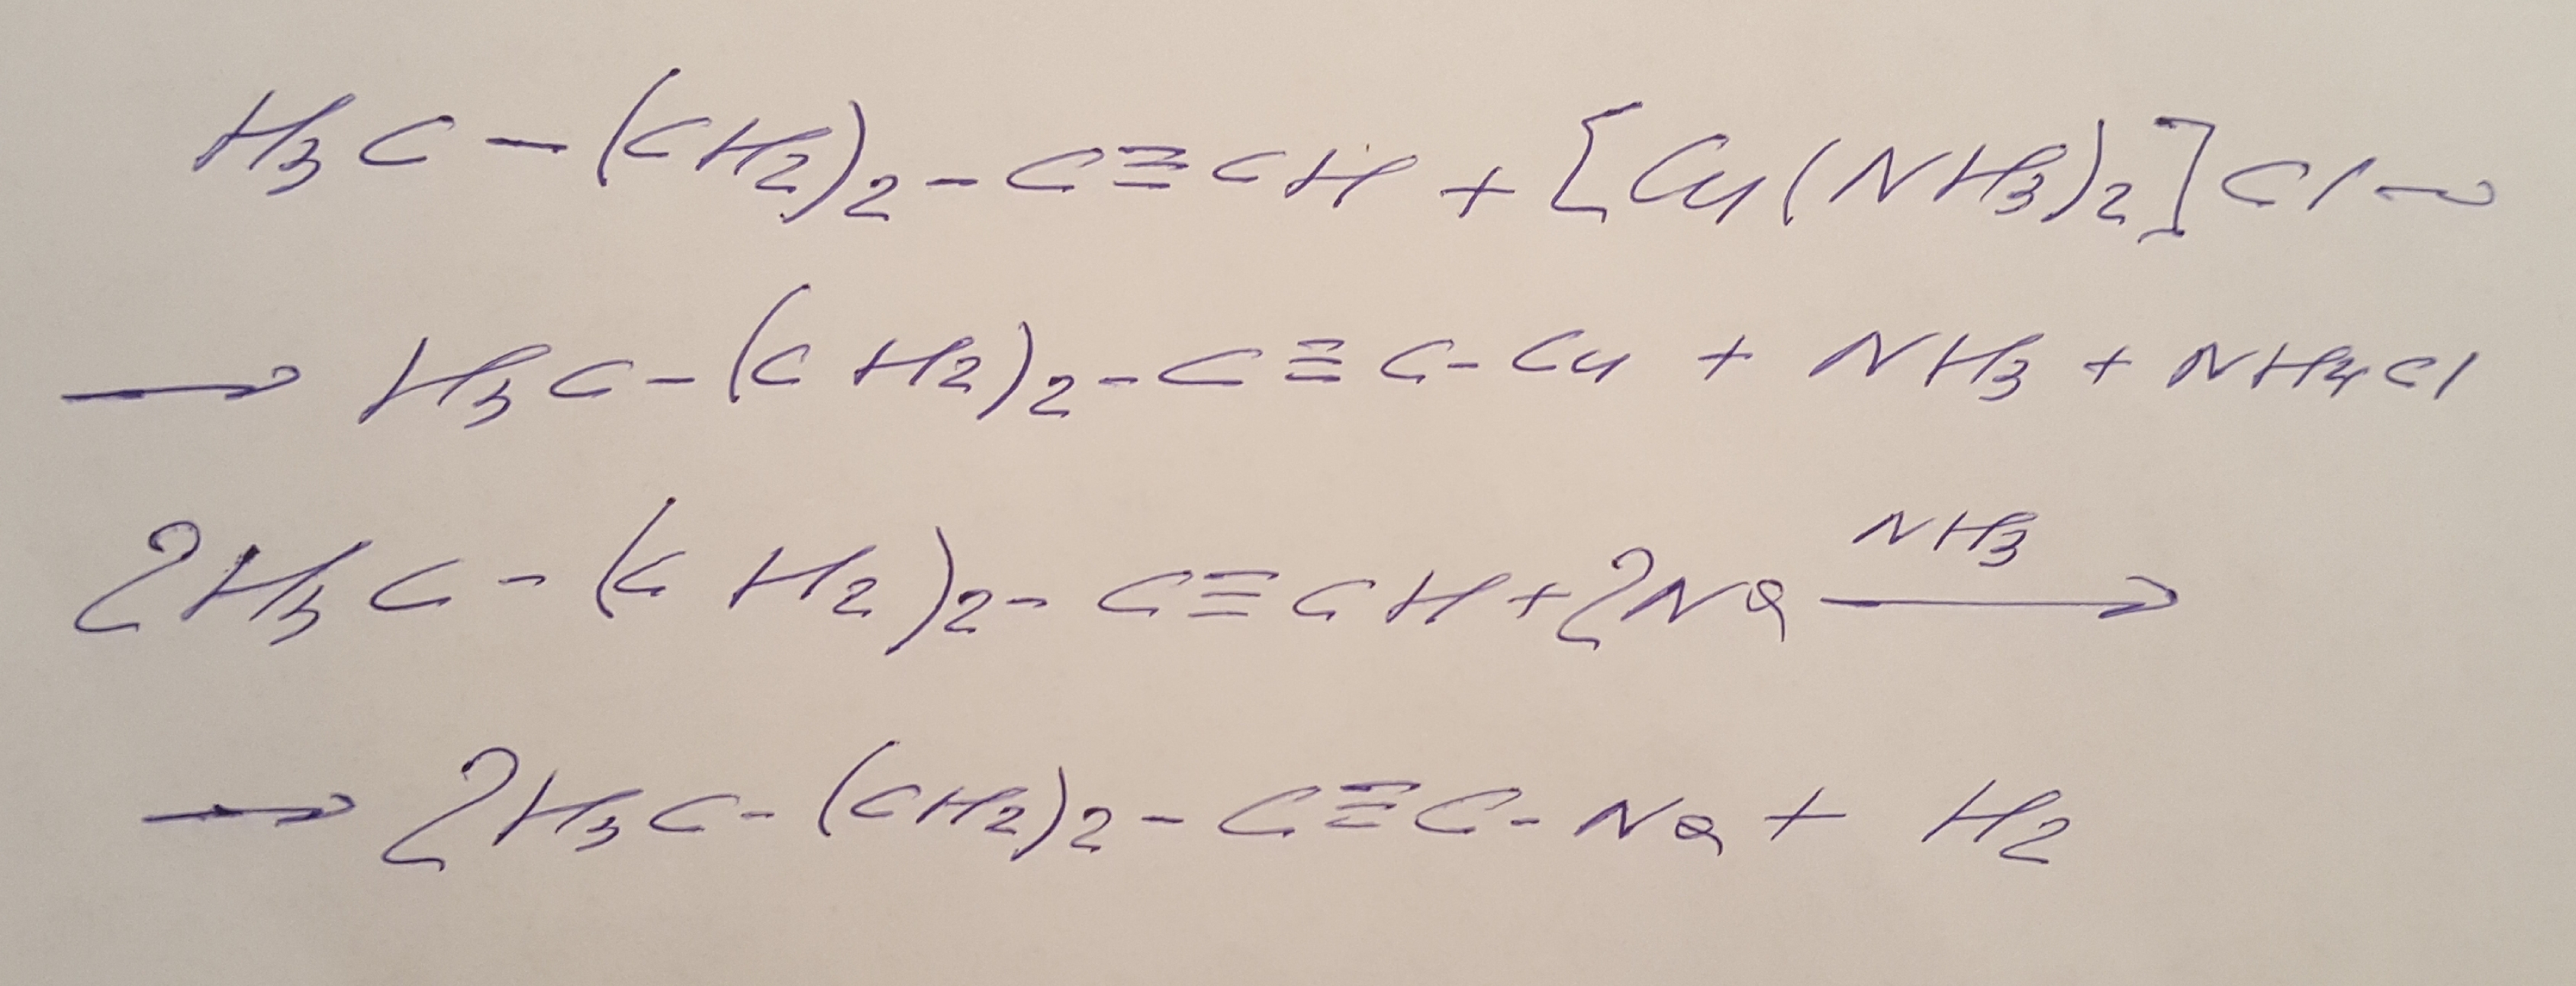 H₃C-(CH₂)₂-C≡CH + [Cu(NH₃)₂]Cl→
→ H₃C-(CH₂)₂-C≡C-Cu + NH₃ + NH₄Cl
NH₃
2H₃C-(CH₂)₂-C≡CH+2Na →
→ 2H₃C-(CH₂)₂-C≡C-Na + H₂